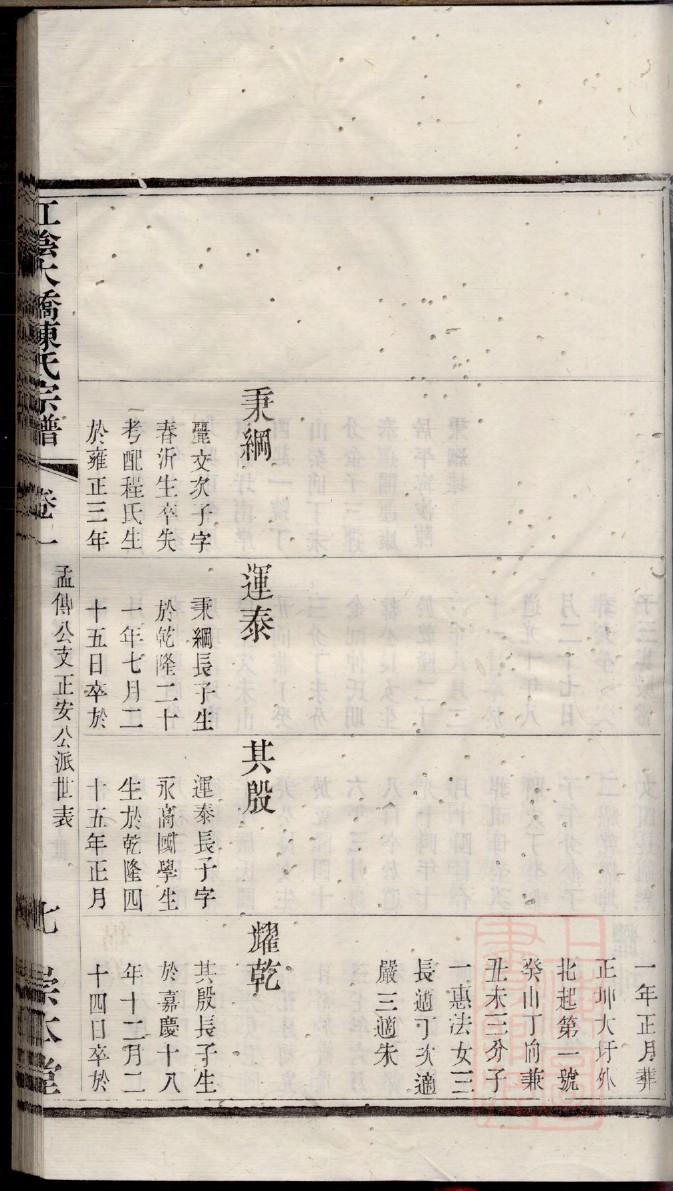 一年正月葬
正圳大圩外
北起第一號
癸山丁向兼
丑未三分子
一惠法女三
長適丁次適
嚴三適朱
秉綱
麗文次子字
春沂生卒失
考配程氏生
於雍正三年
運泰
秉綱長子生
於乾隆二十
一年七月二
十五日卒於
其殷
運泰長子字
永高國學生
生於乾隆四
十五年正月
耀乾
其殷長子生
於嘉慶十八
年十二月二
十四日卒於
江陰大橋陳氏宗譜
卷一
孟傳公支正安公派世表
崇本堂